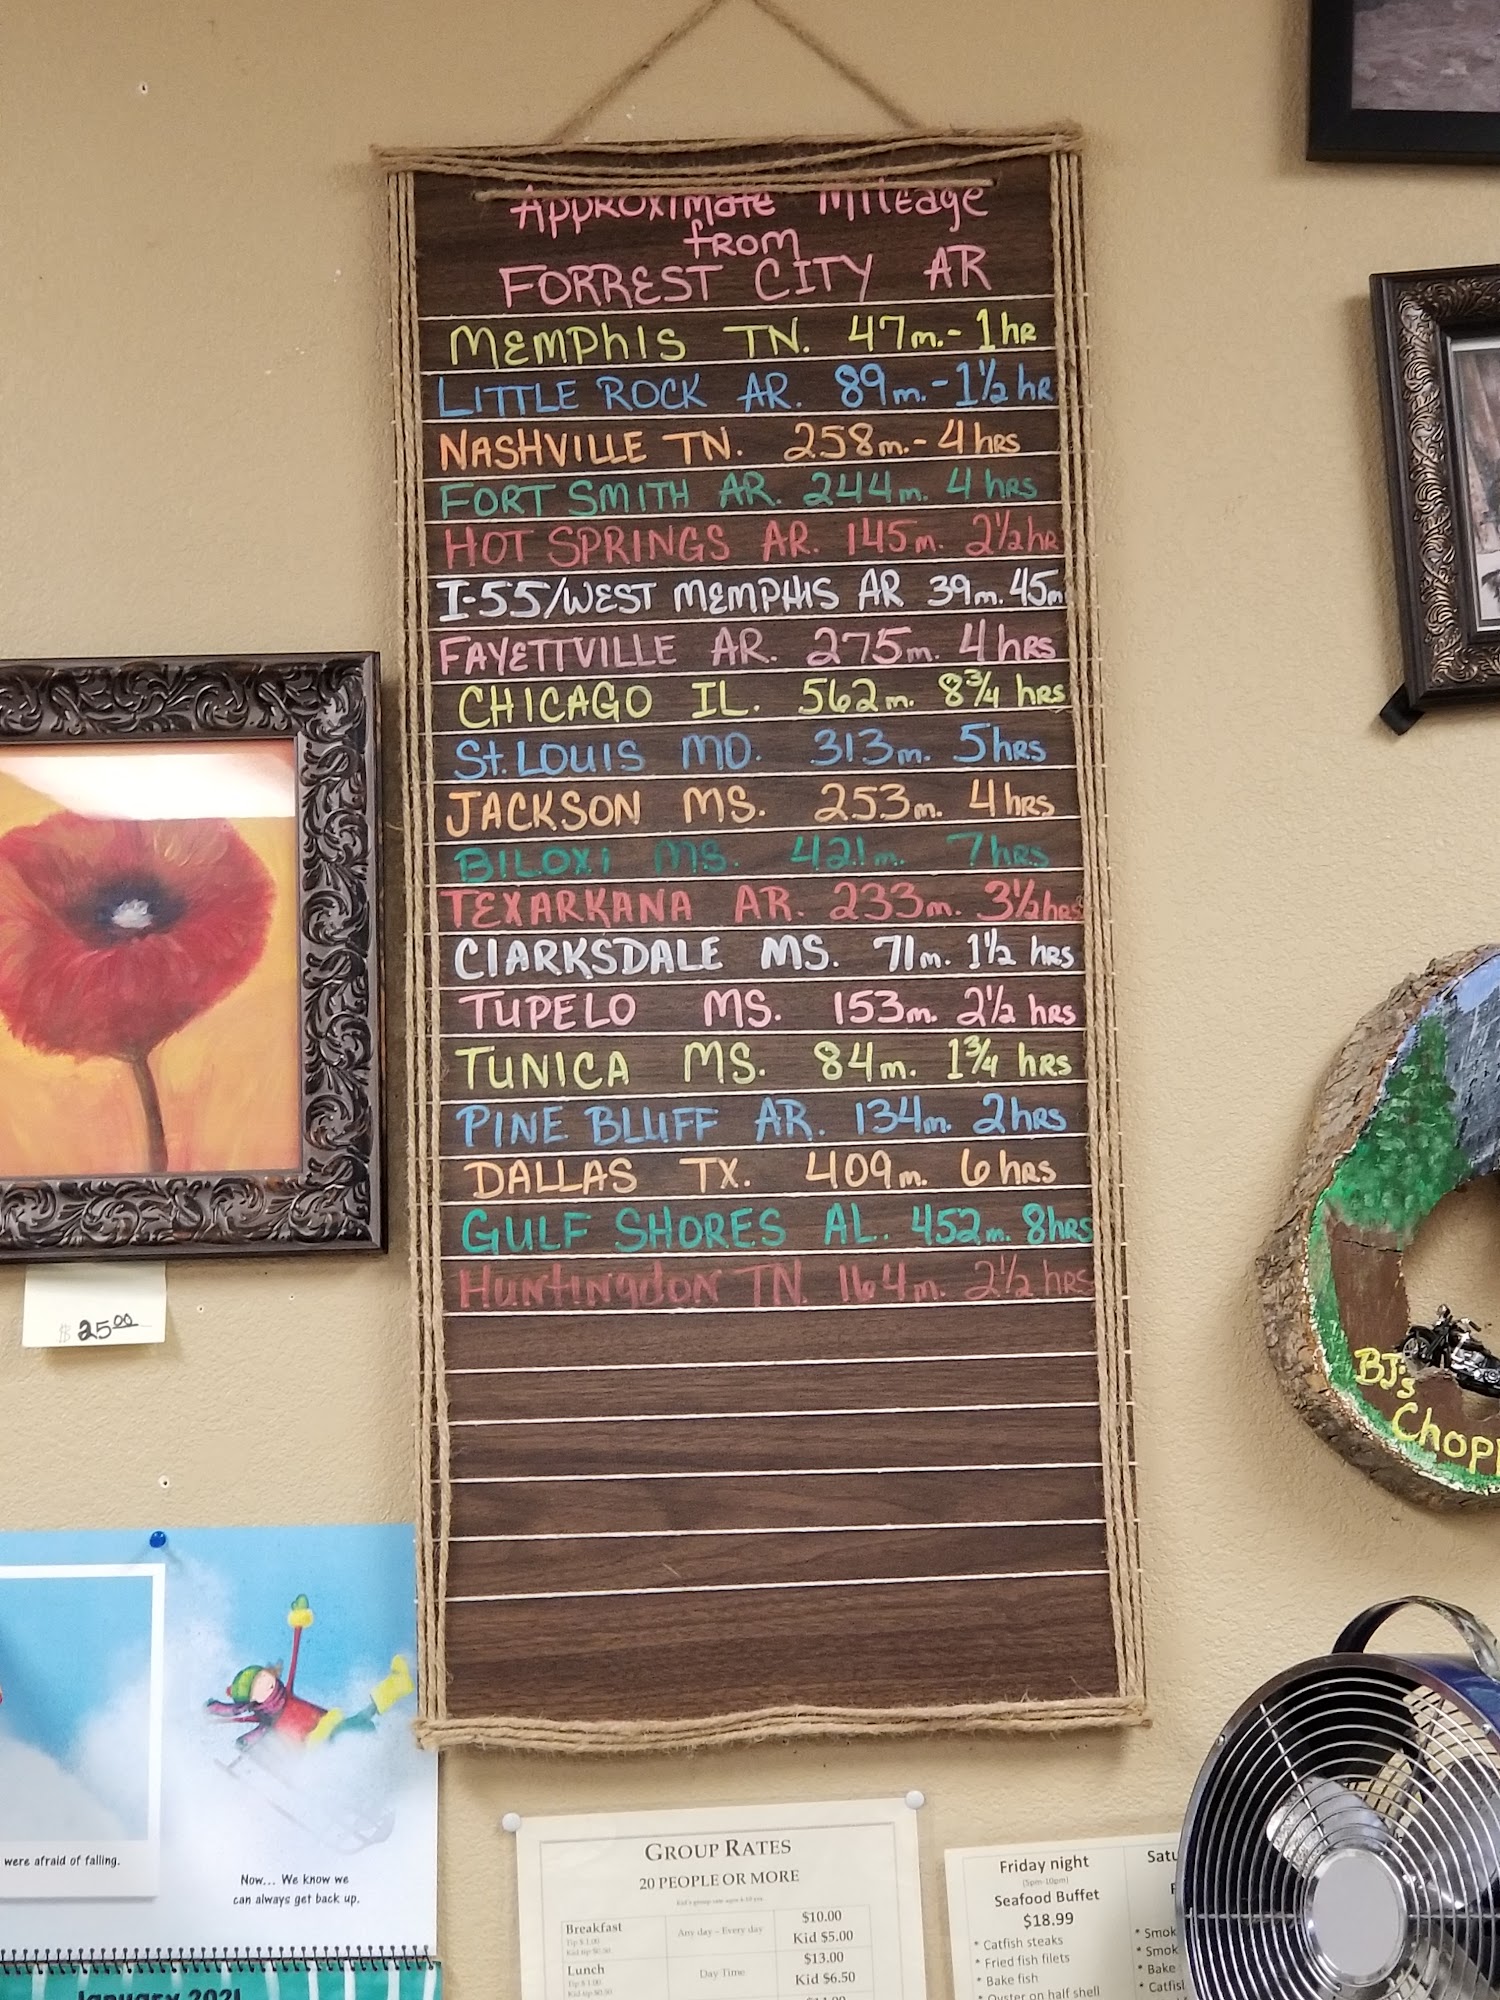 Approximate Mileage
from
FORREST CITY AR
MEMPHIS TN. 47m.- 1hr
LITTLE ROCK AR. 89m.- 1½ hr
NASHVILLE TN. 258m.- 4 hrs
FORT SMITH AR. 244m. 4 hrs
HOT SPRINGS AR. 145m. 2½ hr
I-55/WEST MEMPHIS AR 39m. 45m
FAYETTVILLE AR. 275m. 4 hrs
CHICAGO IL. 562m. 8¾ hrs
St. LOUIS MO. 313m. 5hrs
JACKSON MS. 253m. 4 hrs
BILOXI MS. 421m. 7hrs
TEXARKANA AR. 233m. 3½ hrs
CLARKSDALE MS. 71m. 1½ hrs
TUPELO MS. 153m. 2½ hrs
TUNICA MS. 84m. 1¾ hrs
PINE BLUFF AR. 134m. 2hrs
DALLAS TX. 409m. 6 hrs
GULF SHORES AL. 452m. 8hrs
Huntingdon TN. 164m. 2½ hrs
$25.00
BJ's
Chop
were afraid of falling.
Now... We know we
can always get back up.
January 2021
GROUP RATES
20 PEOPLE OR MORE
Breakfast Any day – Every day $10.00
Tip $ 1.00 Kid $5.00
Lunch Day Time $13.00
Tip $ 1.00 Kid $6.50
Friday night
(5pm-10pm)
Seafood Buffet
$18.99
* Catfish steaks
* Fried fish filets
* Bake fish
* Oyster on half shell
Satu
* Smok
* Smok
* Bake
* Catfis